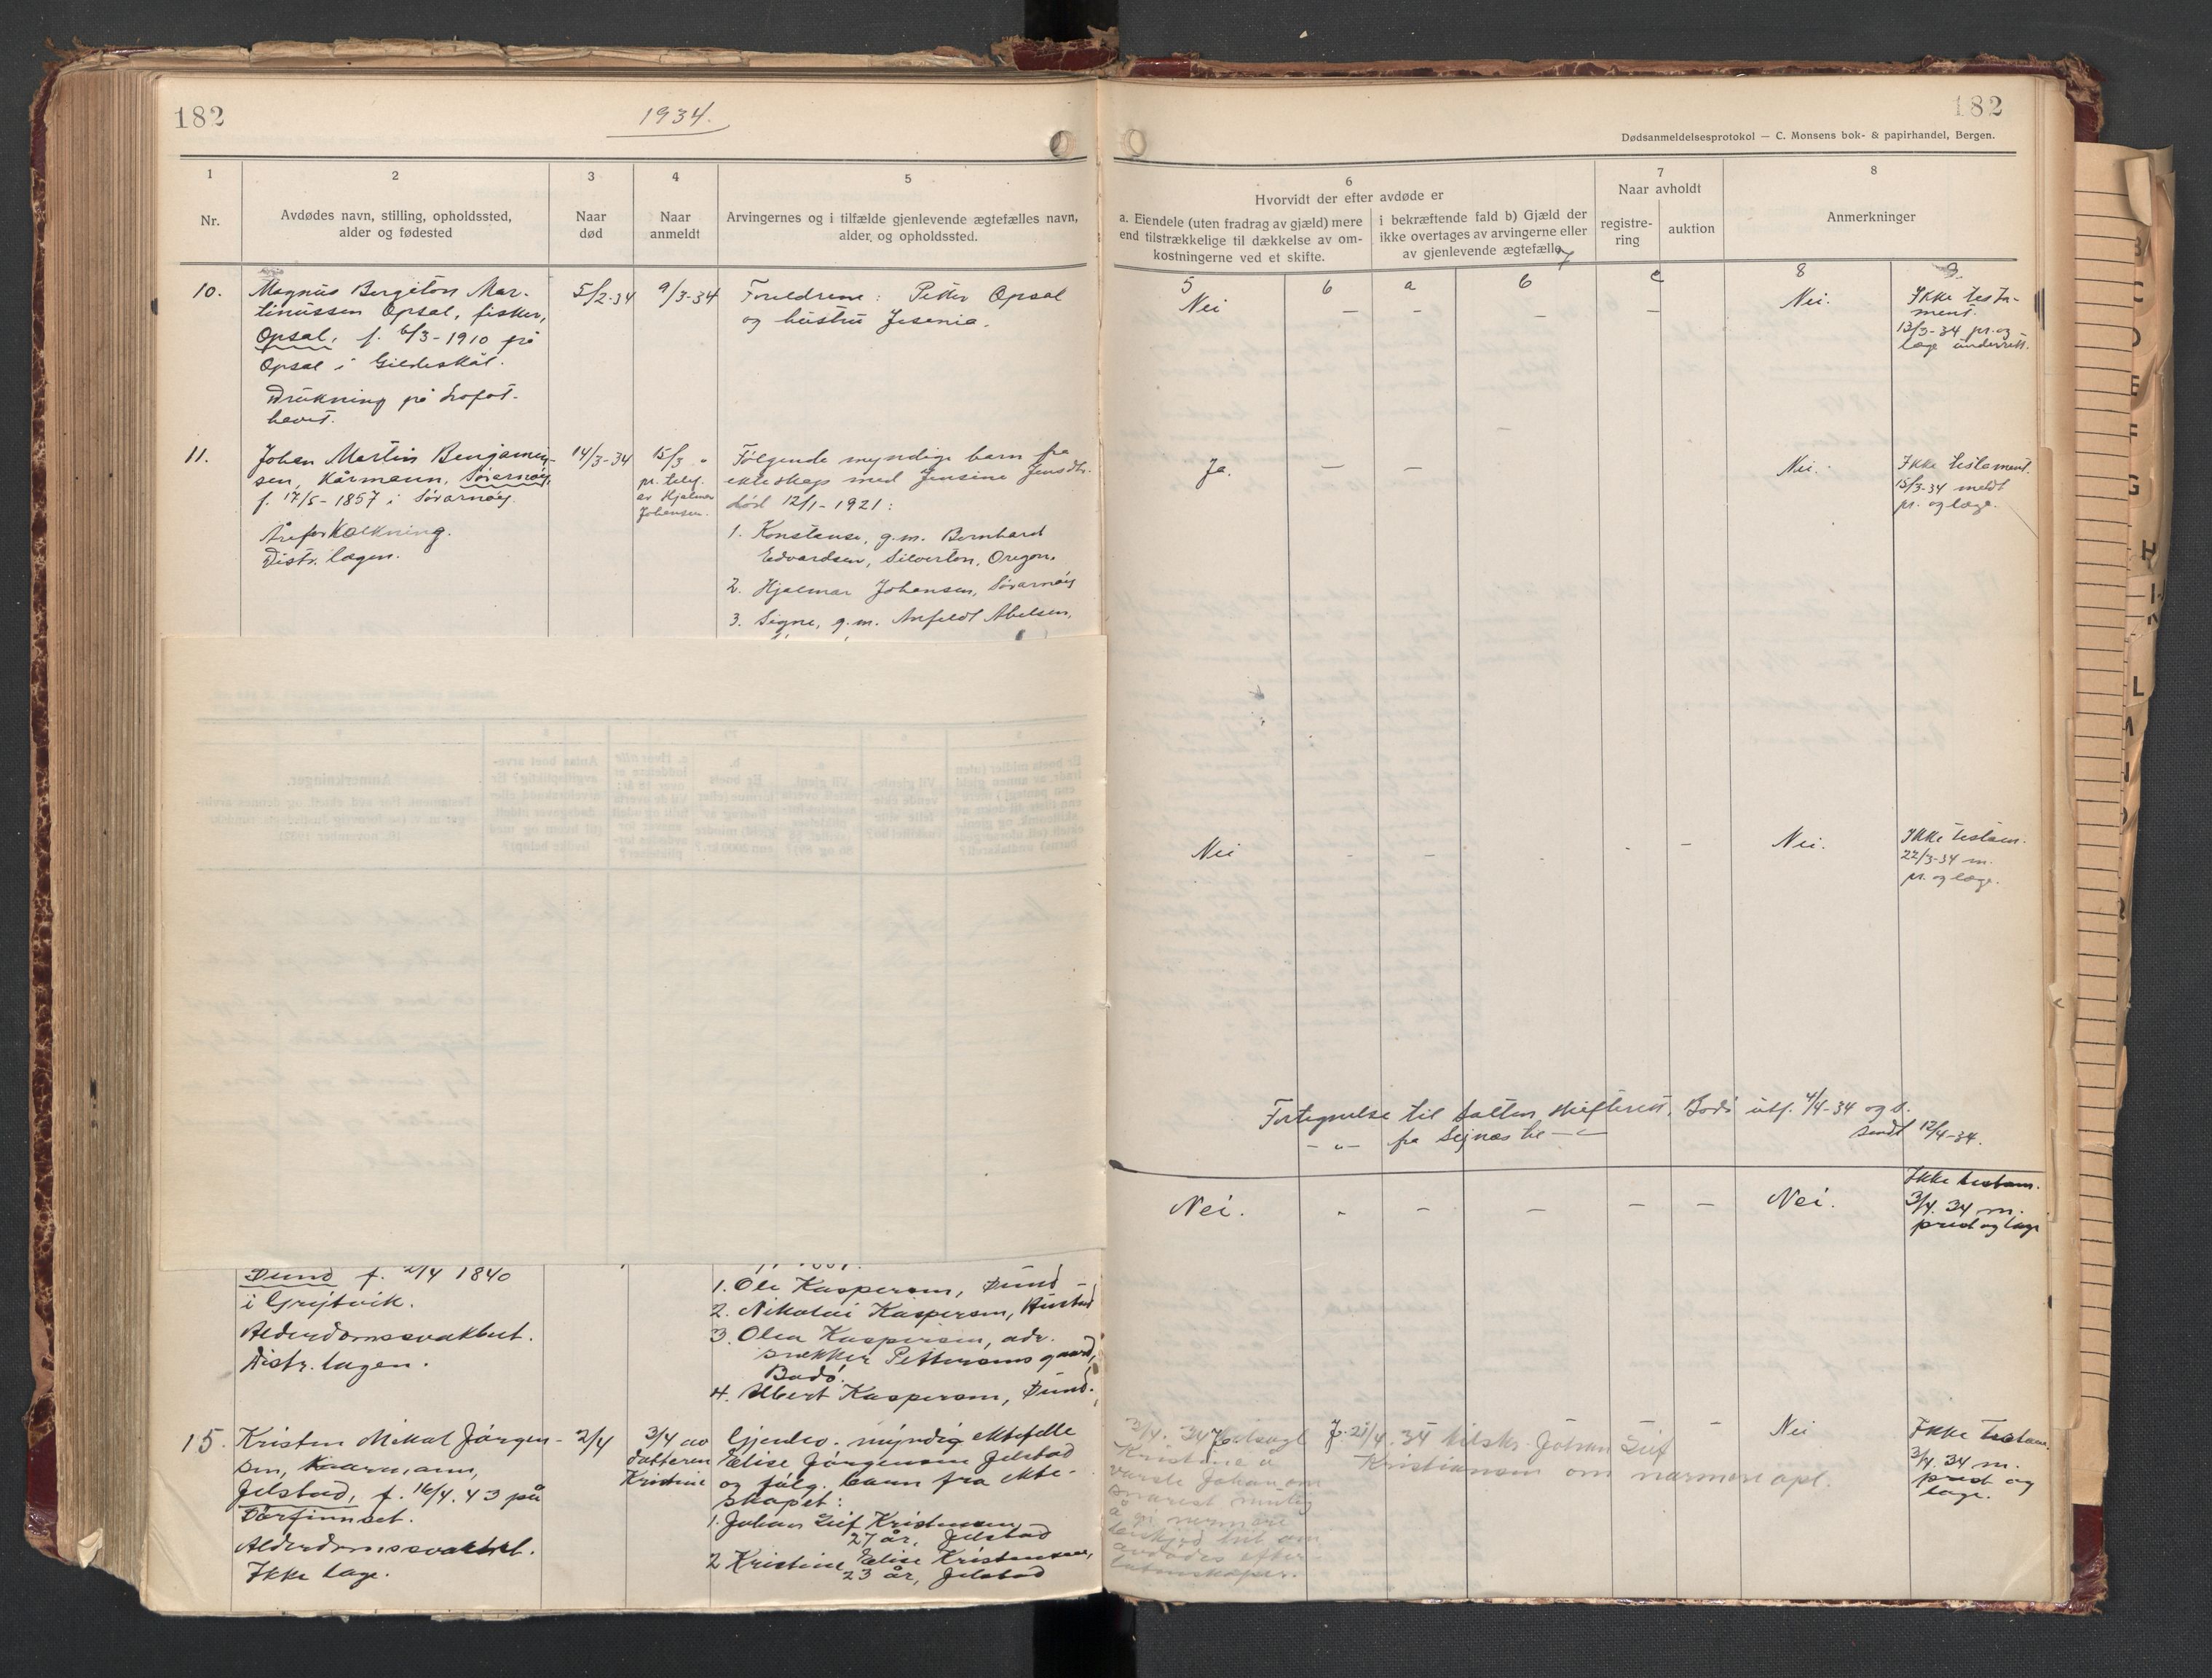 182
1934.
1
2
3
4
5
Nr.
Avdødes navn, stilling, opholdssted,
alder og fødested
Naar
død
Naar
anmeldt
Arvingernes og i tilfælde gjenlevende ægtefælles navn,
alder og opholdssted.
10.
Magnus Bergiton Mar-
tinussen Opsal, fisker,
Opsal, f. 6/3-1910 på
Opsal i Gildeskål.
Drukning på Lofot-
havet.
5/2-34
9/3-34
Foreldrene: Petter Opsal
og hustru Jesenia.
11.
Johan Martin Benjamin-
sen, Kårmann, Sørarnøy,
f. 17/5-1857 i Sørarnøy.
Åreforkalkning.
Distr. lægen.
14/3-34
15/3
pr. telef.
av Hjalmar
Johansen.
Følgende myndige barn fra
ekteskap med Jensine Jensdtr.
død 12/1-1921:
1. Konstanse, g.m. Bernhard
Edvardsen, Silverton, Oregon.
2. Hjalmar Johansen, Sørarnøy
3. Signe, g.m. Anfeldt Abelsen,
Sund f. 2/4 1840
i Grytvik.
Alderdomssvakhet.
Distr. lægen.
1. Ole Kaspersen, Sund
2. Nikolai Kaspersen, Hustad
3. Olea Kaspersen, adr.
snekker Pettersens gaard,
Bodø.
4. Albert Kaspersen, Sund.
15.
Kristen Mikal Jørgen-
sen, Kaarmann,
Jelstad, f. 16/4.43 på
Torfinset.
Alderdomssvakhet.
Ikke læge.
2/4
3/4 av
datteren
Kristine
Gjenlev. myndig ektefelle
Elise Jørgensen Jelstad
og følg. barn fra ekte-
skapet:
1. Johan Leif Kristensen
27 år, Jelstad
2 Kristine Elise Kristensen,
23 år, Jelstad
182
Dødsanmeldelsesprotokol — C. Monsens bok- & papirhandel, Bergen.
6
Hvorvidt der efter avdøde er
a. Eiendele (uten fradrag av gjæld) mere
end tilstrækkelige til dækkelse av om-
kostningerne ved et skifte.
i bekræftende fald b) Gjæld der
ikke overtages av arvingerne eller
av gjenlevende ægtefælle
7
Naar avholdt
registre-
ring
auktion
8
Anmerkninger
5
6
a
b
c
7
8
9.
Nei
— — — —
Nei.
Ikke testa-
ment.
13/3-34 pr. og
læge underrett.
Ja.
— —
Nei.
Ikke testament.
15/3-34 meldt
pr. og læge.
Nei
- - - - -
Nei.
Ikke testam.
22/3-34 m.
pr. og læge.
Fortegnelse til Salten skifterett, Bodø utf. 4/4-34 og s.
— " — fra Signas
sendt 12/4-34.
Nei.
- - - - -
Nei.
Ikke testam.
3/4. 34 m.
prest og læge
3/4. 34 tilsagt
Kristine å
varsle Johan om
snarest mulig
å gi nermere
beskjed hit om
avdødes efter-
latenskaper.
J. 21/4. 34 tilskr. Johan Leif
Kristiansen om nærmere opl.
Nei
Ikke testam.
3/4. 34 m.
prest og
læge.